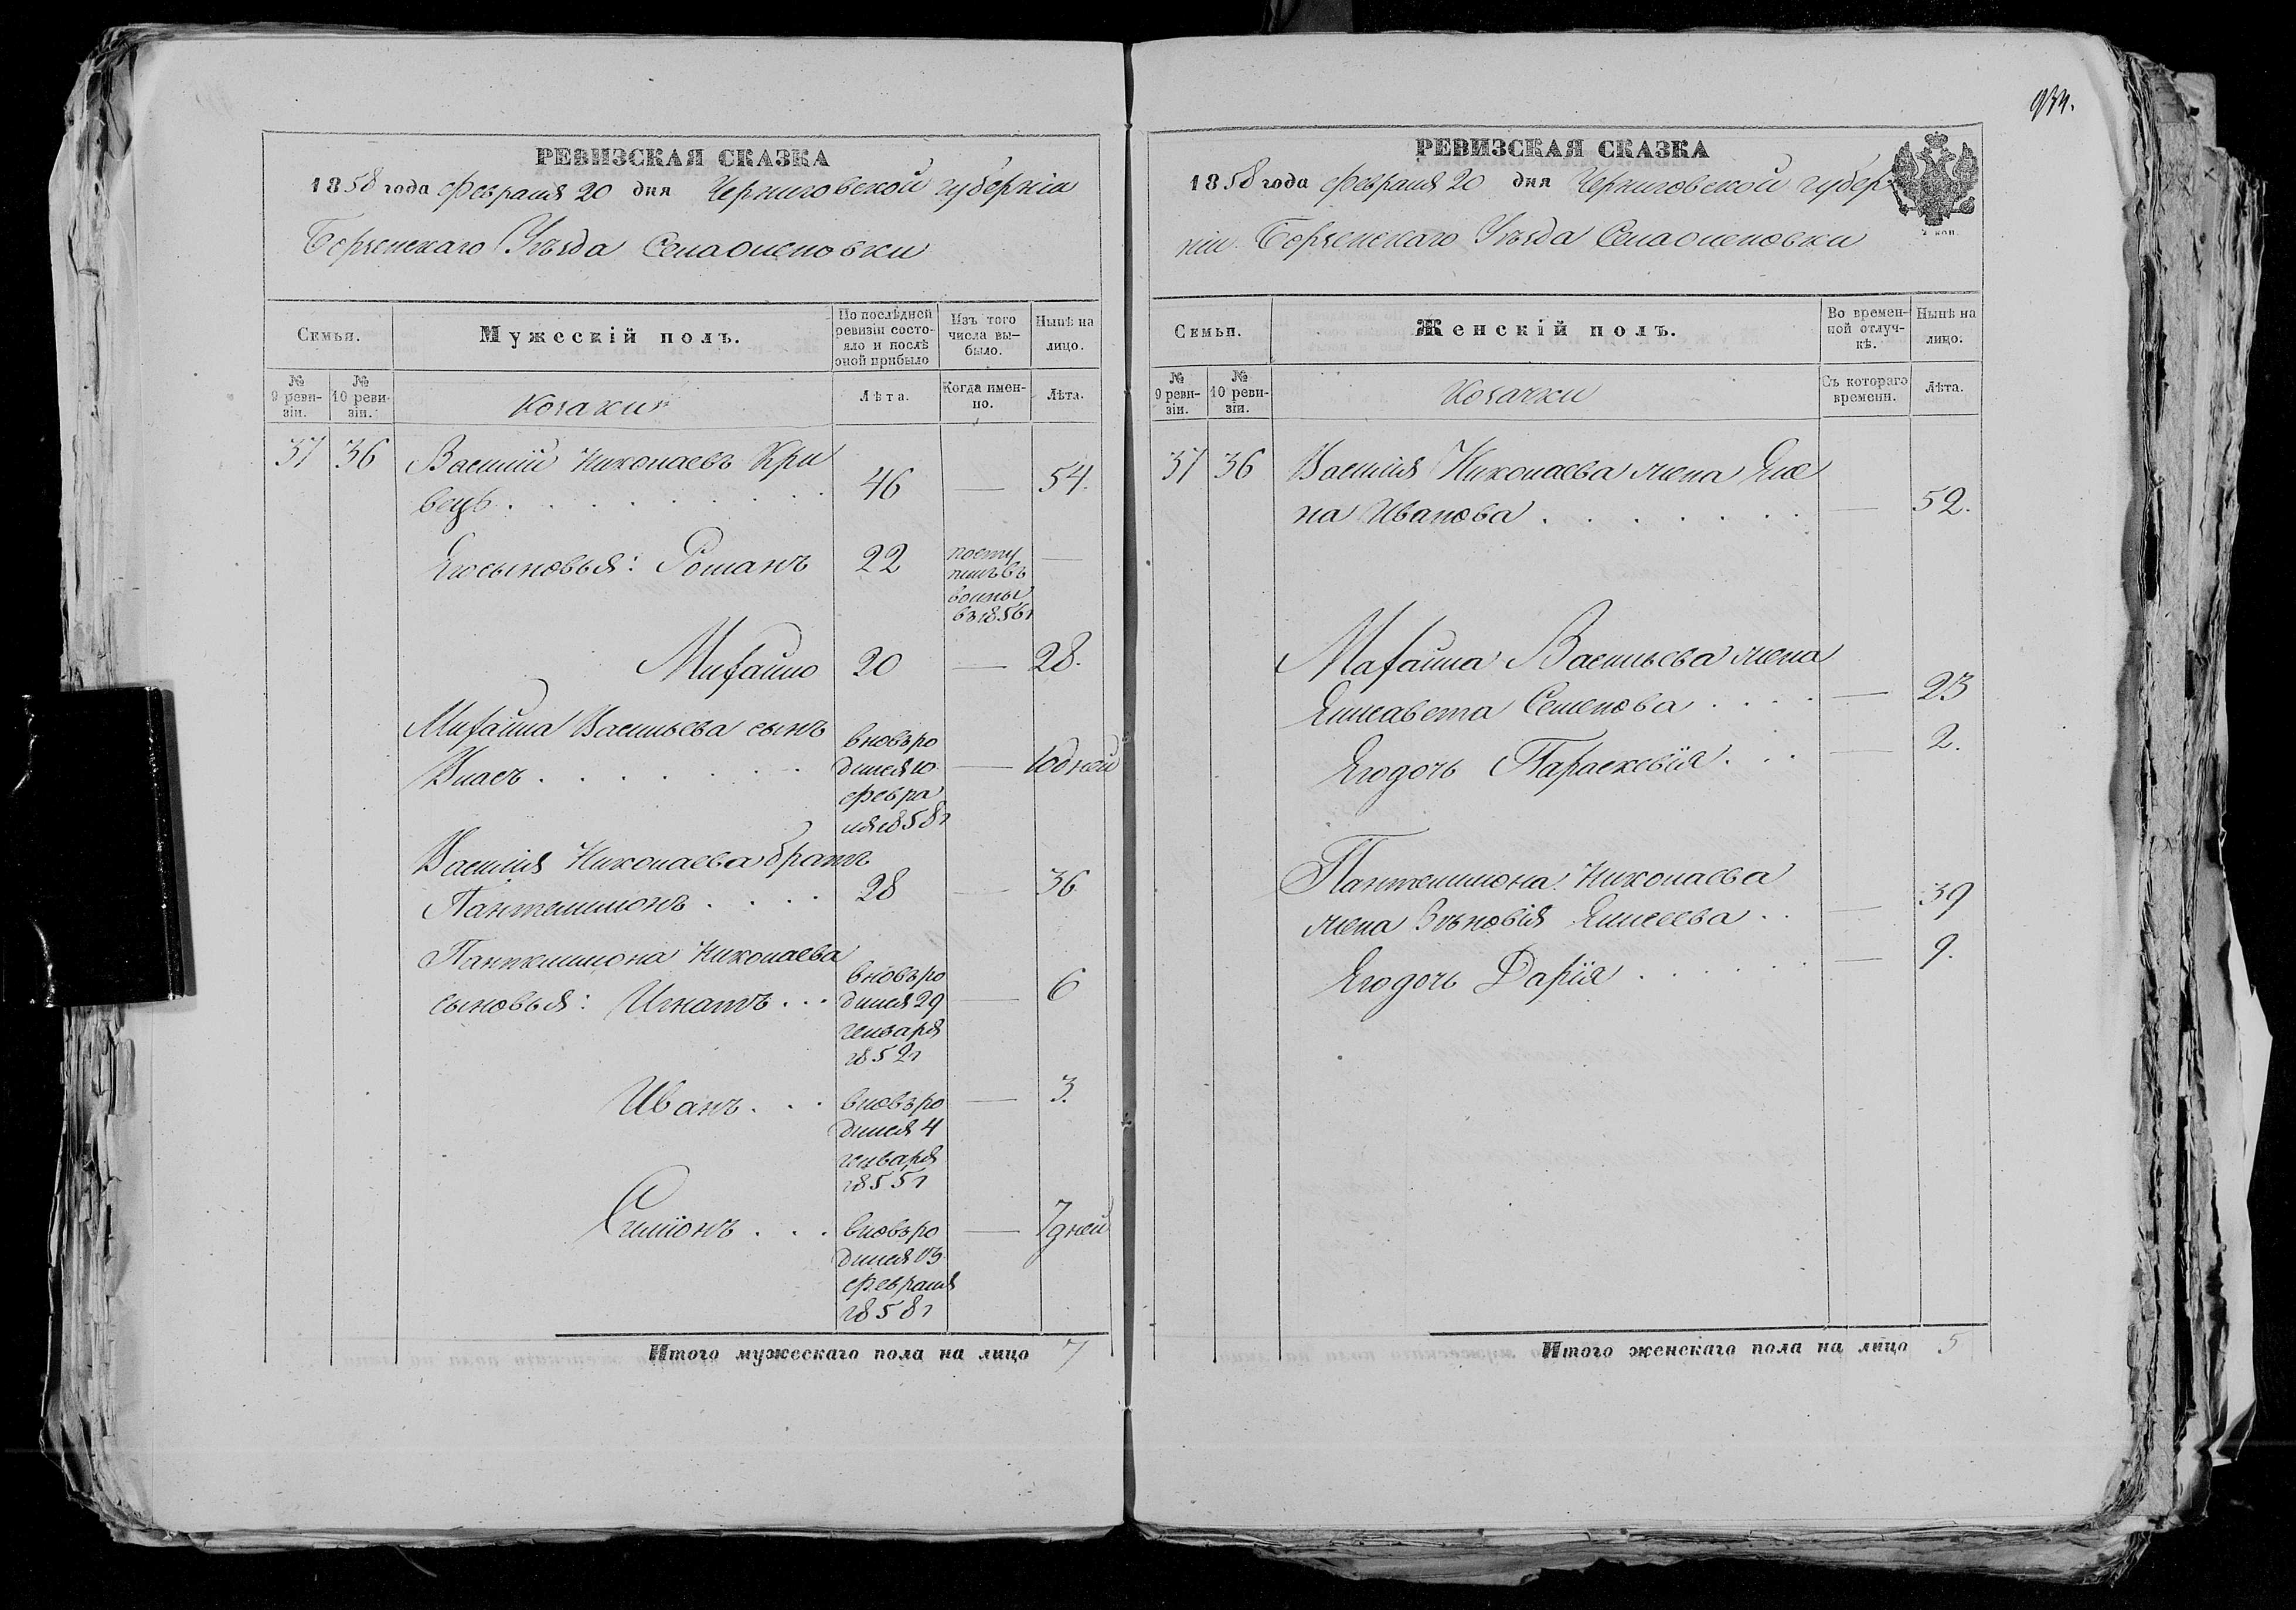 934.
РЕВИЗСКАЯ СКАЗКА
1858 года Февраля 20 дня Черниговской губерніи
Борзенскаго Уѣзда Села Оленовки
Семьи.
Мужескій полъ.
По послѣдней ревизіи состояло и послѣ оной прибыло
Изъ того числа выбыло.
Ныне на лицо.
№ 9 ревизіи.
№ 10 ревизіи.
Козаки
Лѣта.
Когда именно.
Лѣта.
37 36 Василій Николаевъ Кри
вецъ . . . . . . . . 46 — 54.
Его сыновья: Романъ 22 посту
пилъ въ
воины
въ 1856г —
Михайло 20 — 28.
Михайла Васильева сынъ
Власъ . . . . . . . вновь ро
дился 10
Февра
ля 1858г — 10 дней
Василія Николаева братъ
Пантелимонъ . . . . 28 — 36
Пантелимона Николаева
сыновья: Игнатъ . . . вновь ро
дился 29
генваря
1852г — 6
Иванъ . . . вновь ро
дился 4
генваря
1855г — 3.
Симіонъ . . . вновь ро
дился 13
Февраля
1858г — 7 дней
Итого мужескаго пола на лицо 7
РЕВИЗСКАЯ СКАЗКА
1858 года Февраля 20 дня Черниговской губер
ніи Борзенскаго Уѣзда Села Оленовки
Семьи.
Женскій полъ.
Во временной отлучкѣ.
Нынѣ на лицо.
№ 9 ревизіи.
№ 10 ревизіи.
Козачки
Съ котораго времени.
Лѣта.
37 36 Василія Николаева жена Еле
на Иванова . . . . . . . — 52.
Михайла Васильева жена
Елисавета Семенова . . . . — 23
Его дочь Параскевія . . . — 2.
Пантелимона Николаева
жена Зѣновія Елисеева . . — 39
Его дочь Дарія . . . . . . — 9.
Итого женскаго пола на лицо 5